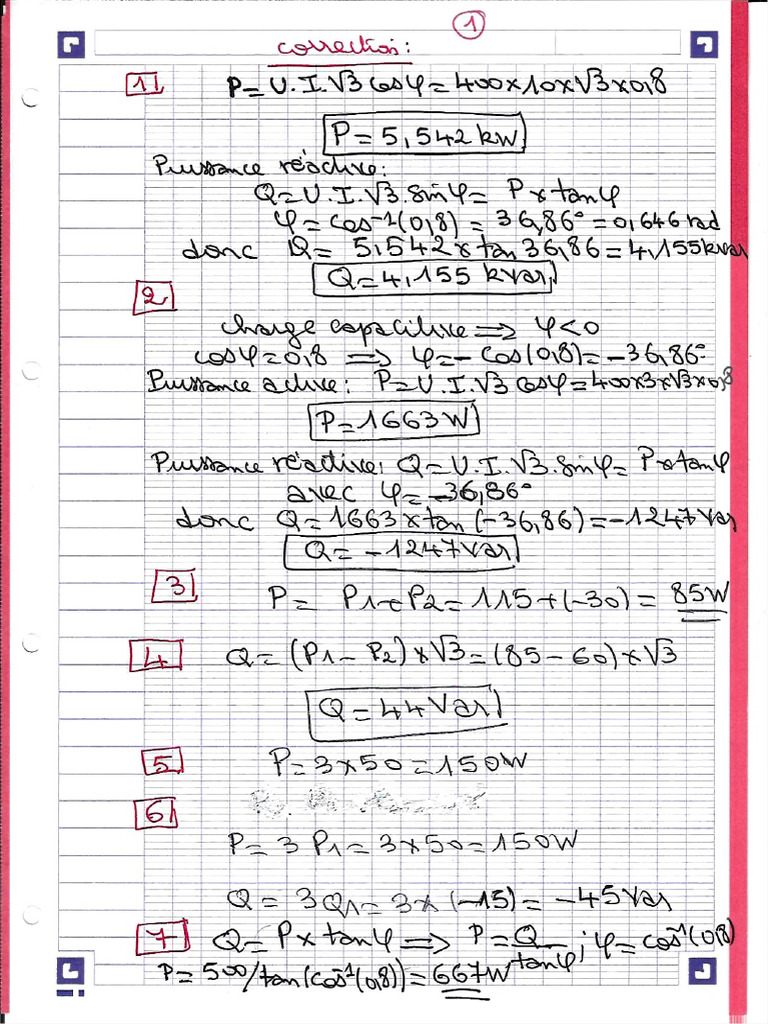 1
correction:
1 P = U.I.√3 cosφ = 400x10x√3x0,8
P = 5,542 kW
Puissance réactive:
Q = U.I.√3.sinφ = P x tanφ
φ = cos⁻¹(0,8) = 36,86° = 0,646 rad
donc Q = 5,542 x tan 36,86 = 4,155 kvar
Q = 4,155 kvar
2
charge capacitive ⟹ φ<0
cosφ = 0,8 ⟹ φ = - cos(0,8) = -36,86°
Puissance active: P = U.I.√3 cosφ = 400x3x√3x0,8
P = 1663 W
Puissance réactive: Q = U.I.√3.sinφ = P x tanφ
avec φ = -36,86°
donc Q = 1663 x tan (-36,86) = -1247 Var
Q = -1247 Var
3 P = P1 + P2 = 115 + (-30) = 85 W
4 Q = (P1 - P2) x √3 = (85 - 60) x √3
Q = 44 Var
5 P = 3 x 50 = 150 W
6
P = 3 P1 = 3 x 50 = 150 W
Q = 3 Q1 = 3 x (-15) = -45 Var
7 Q = P x tanφ ⟹ P = Q/tanφ ; φ = cos⁻¹(0,8)
P = 500/tan(cos⁻¹(0,8)) = 667 W